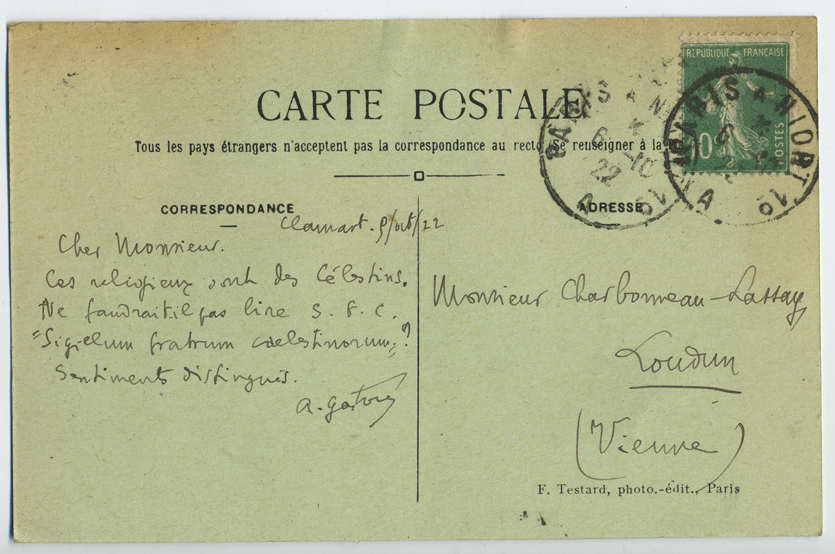 CARTE POSTALE
Tous les pays étrangers n'acceptent pas la correspondance au recto (Se renseigner à la
RÉPUBLIQUE FRANÇAISE
10
POSTES
PARIS A NIORT 1º
6 -10
22
A
PARIS A NIORT 1º
A
CORRESPONDANCE
ADRESSE
Clamart. 5/oct/22
Cher Monsieur.
Ces religieux sont des Célestins.
Ne faudrait il pas lire S. F. C.
"Sigillum fratrum caelestinorum"?
Sentiments distingués.
Monsieur Charbonneau-Lassay
Loudun
(Vienne)
F. Testard, photo.-édit., Paris